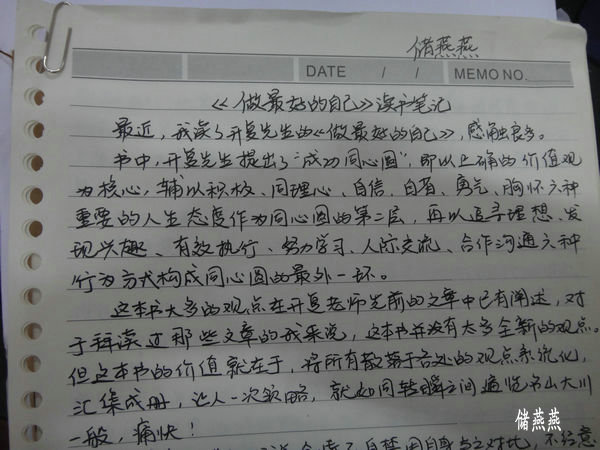 储燕燕
DATE / / MEMO NO.
《做最好的自己》读书笔记
最近，我读了开复先生的《做最好的自己》，感触良多。
书中，开复先生提出了“成功同心圆”，即以正确的价值观
为核心，辅以积极、同理心、自信、自省、勇气、胸怀六种
重要的人生态度作为同心圆的第二层，再以追寻理想、发
现兴趣、有效执行、努力学习、人际交流、合作沟通六种
行为方式构成同心圆的最外一环。
这本书大多的观点在开复老师先前的文章中已有阐述，对
于拜读过那些文章的我来说，这本书并没有太多全新的观点。
但这本书的价值就在于，将所有散落于各处的观点系统化，
汇集成册，让人一次领略，就如同转瞬之间遍览名山大川
一般，痛快！
储燕燕